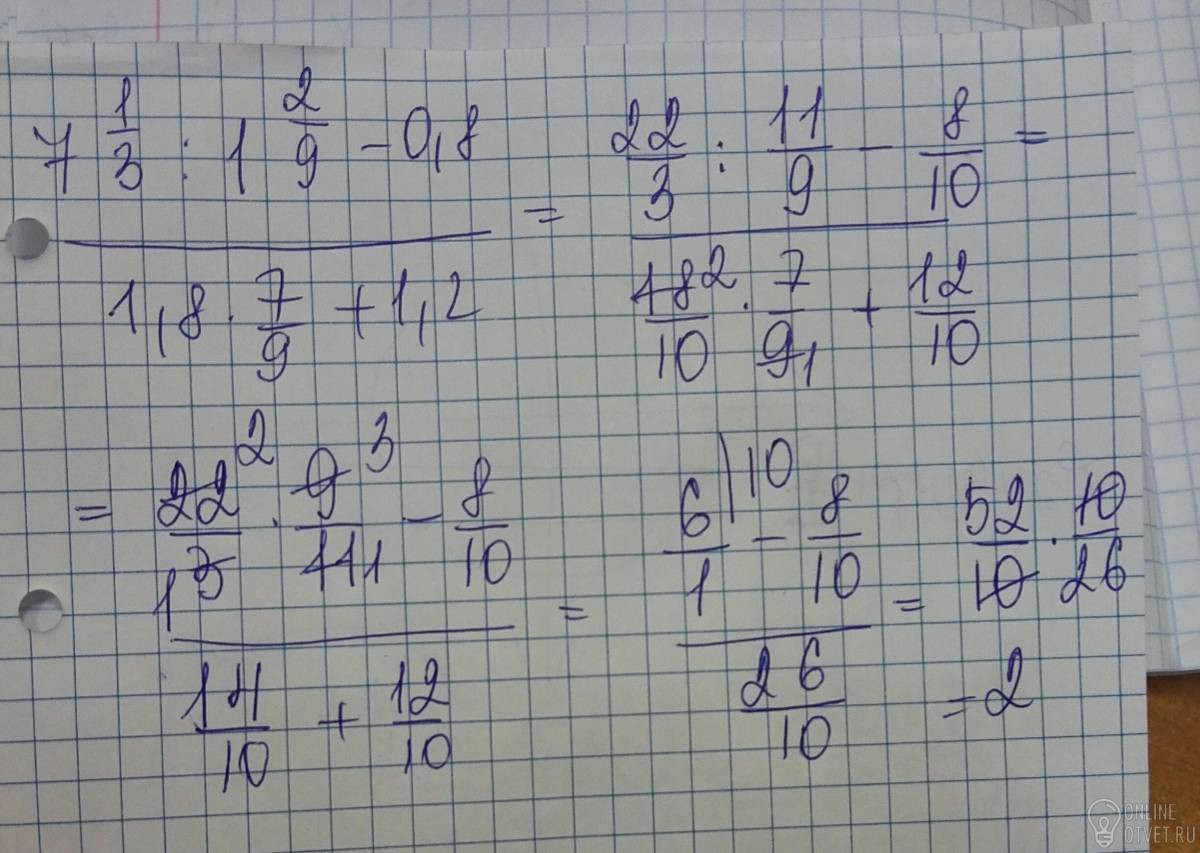 7 1/3 : 1 2/9 - 0,8 / 1,8 · 7/9 + 1,2 = 22/3 : 11/9 - 8/10 / 18 2/10 · 7/9 1 + 12/10 =
= 22 2/1 3 · 9 3/11 1 - 8/10 / 14/10 + 12/10 = 6/1 |10 - 8/10 / 26/10 = 52/10 · 10/26
= 2
ONLINE
OTVET.RU